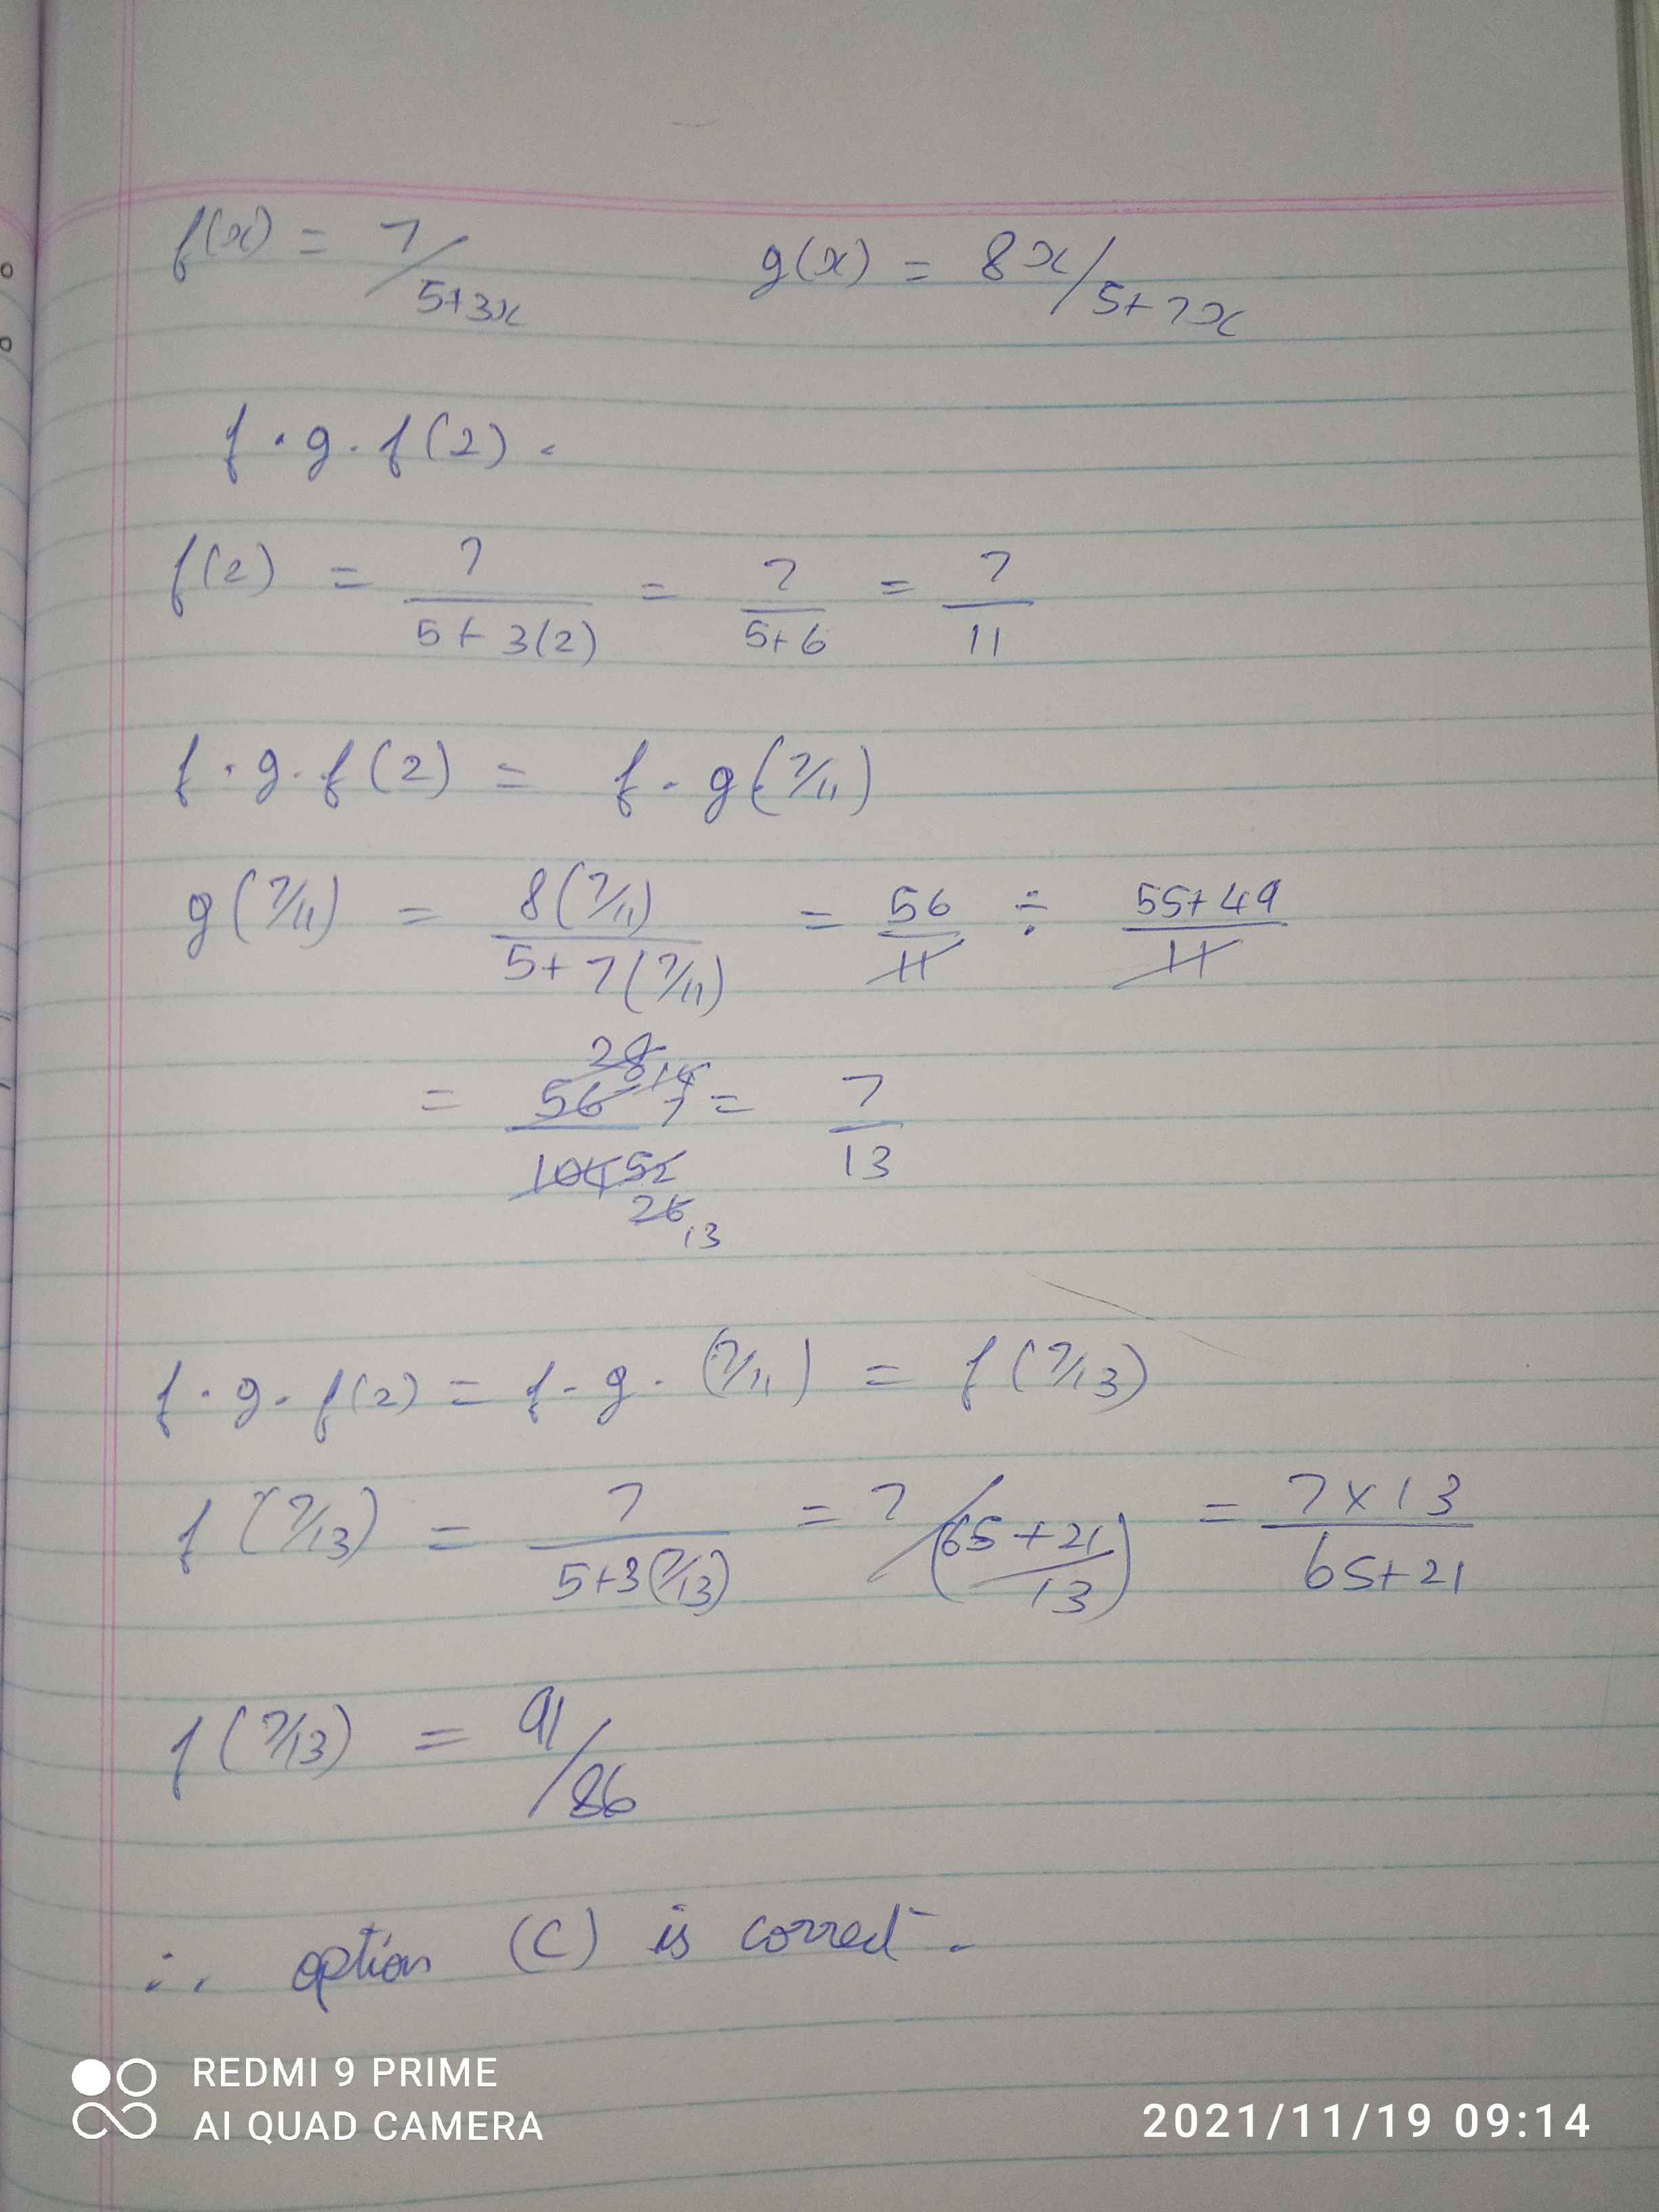 f(x) = 7/5+3x g(x) = 8x/5+7x
f . g . f(2) .
f(2) = 7/5+3(2) = 7/5+6 = 7/11
f . g . f(2) = f . g(7/11)
g(7/11) = 8(7/11)/5+7(7/11) = 56/11 ÷ 55+49/11
= 56 28 14 7/104 52 26 13 = 7/13
f . g . f(2) = f - g . (7/11) = f(7/13)
f(7/13) = 7/5+3(7/13) = 7/(65+21/13) = 7x13/65+21
f(7/13) = 91/86
∴ option (C) is correct .
REDMI 9 PRIME
AI QUAD CAMERA
2021/11/19 09:14